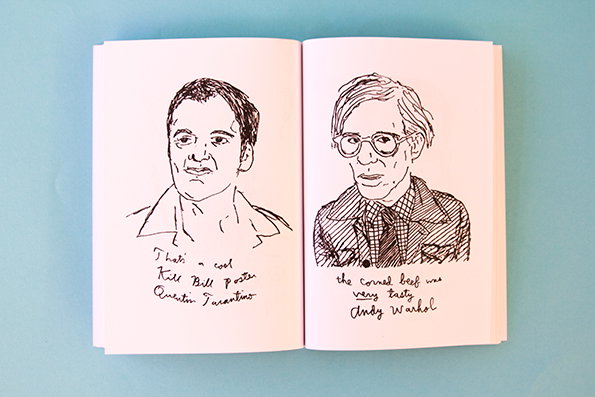 That's a cool
Kill Bill poster
Quentin Tarantino
the corned beef was
very tasty
Andy Warhol